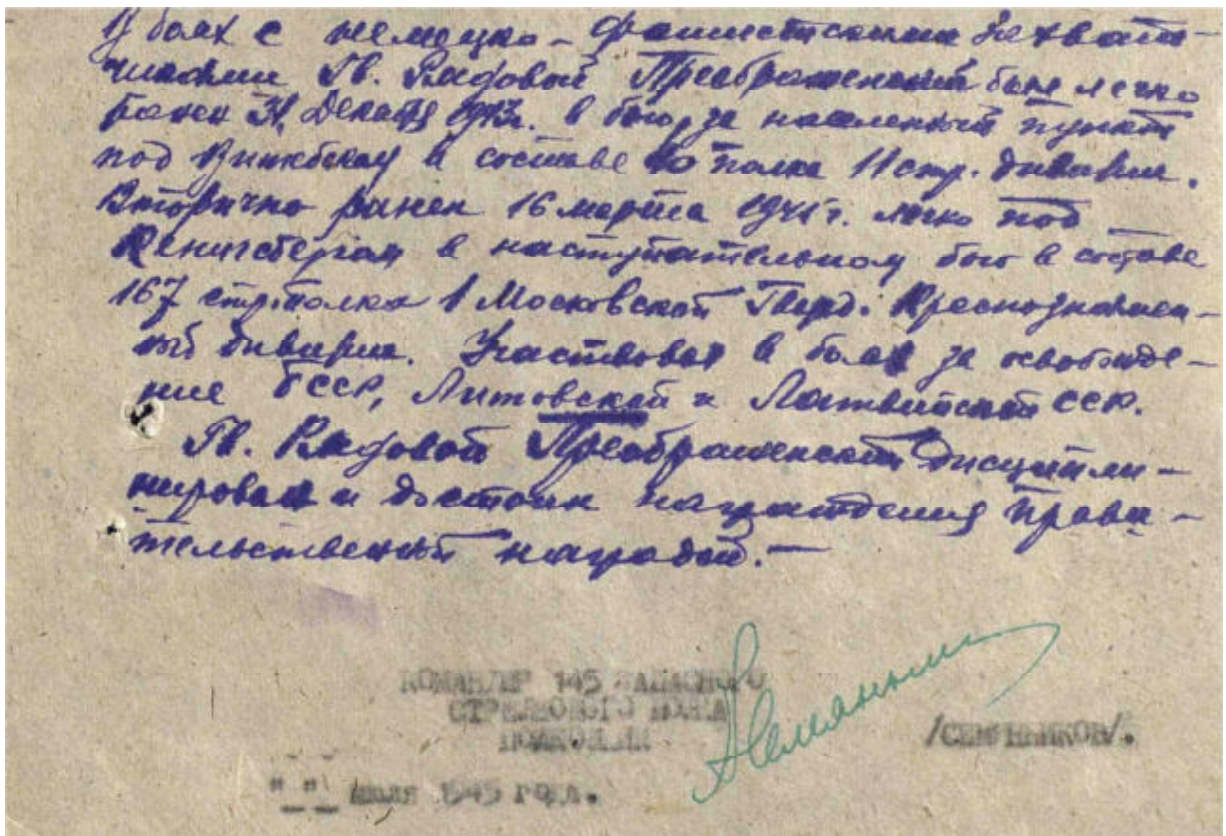 В боях с немецко-фашистскими захват-
чиками Гв. Рядовой Преображенский был легко
ранен 31 Декабря 1943г. в бою за населенный пункт
под Витебском в составе 40 полка 11 стр. дивизии.
Вторично ранен 16 марта 1945г. легко под
Кенигсбергом в наступательном бою в составе
167 стр. полка 1 Московской Гвард. Краснознамен-
ной дивизии. Участвовал в боях за освобожде-
ние БССР, Литовской и Латвийской ССР.
Гв. Рядовой Преображенский дисципли-
нирован и достоин награждения прави-
тельственной наградой.—
КОМАНДИР 145 ЗАПАСНОГО
СТРЕЛКОВОГО ПОЛКА
ПОЛКОВНИК
" " июля 1945 года.